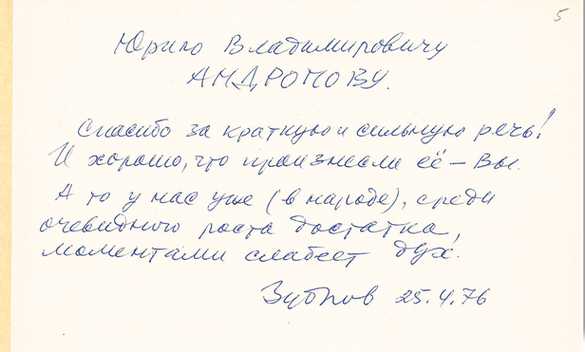 5
Юрию Владимировичу
АНДРОПОВУ.
Спасибо за краткую и сильную речь!
И хорошо, что произнесли её – Вы.
А то у нас уже (в народе), среди
очевидного роста достатка,
моментами слабеет дух.
25.4.76